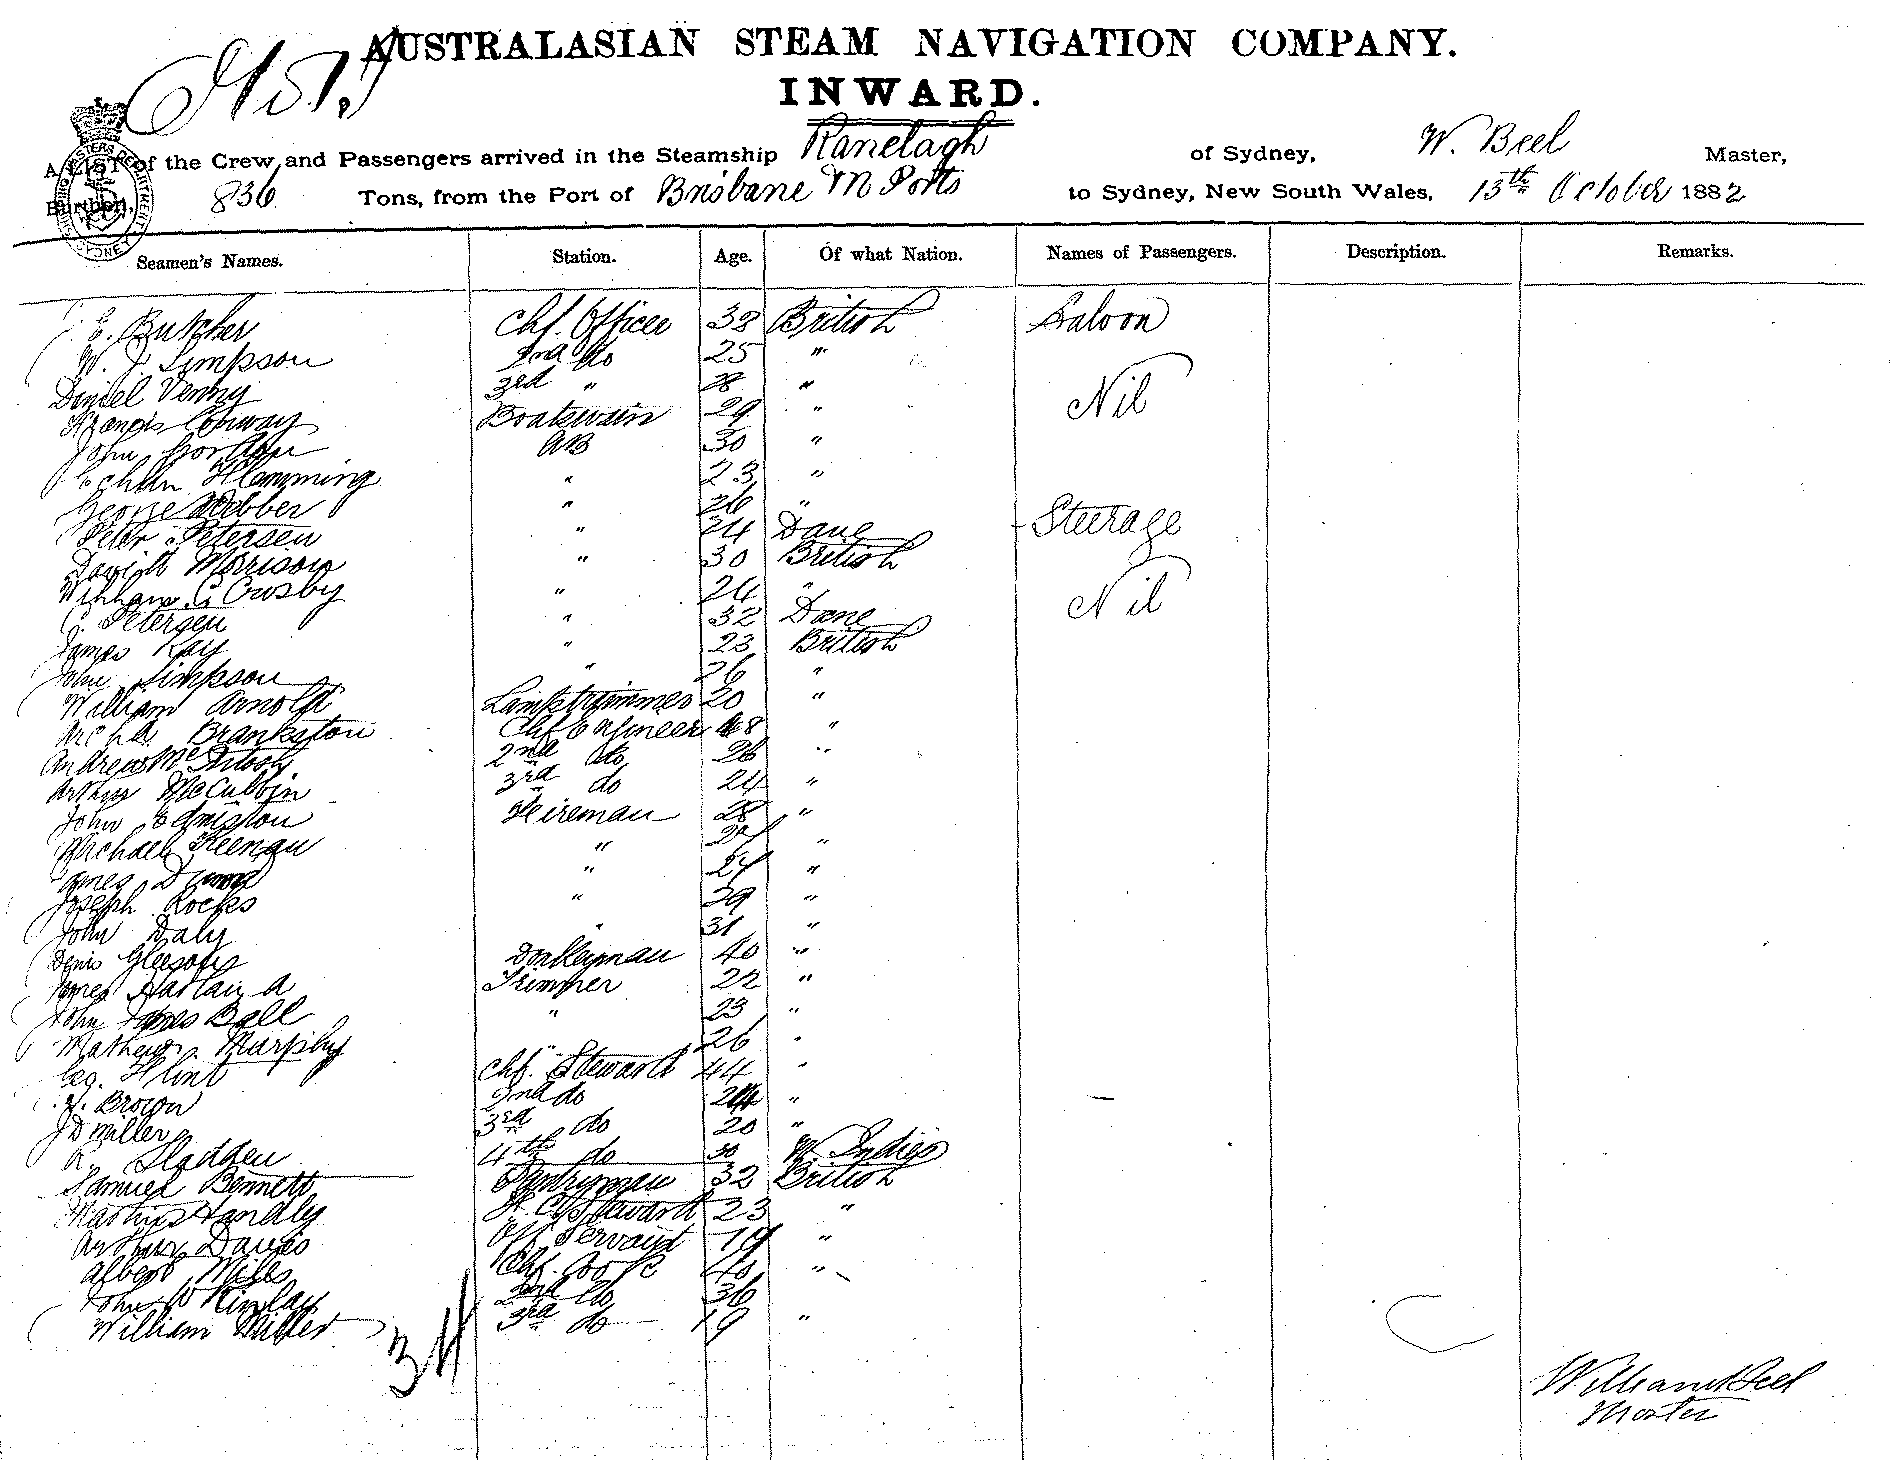 AUSTRALASIAN STEAM NAVIGATION COMPANY.
INWARD.
A LIST of the Crew and Passengers arrived in the Steamship Ranelagh of Sydney, W. Beel Master,
Burthen, 836 Tons, from the Port of Brisbane M Ports to Sydney, New South Wales, 13th October 1882
Seamen's Names. Station. Age. Of what Nation. Names of Passengers. Description. Remarks.
E. Butcher Chf. Officer 38 British Saloon
W. J. Simpson 2nd do 25 "
Daniel Venny 3rd " 28 " Nil
Francis Conway Boatswain 29 "
John Gordon AB 30 "
Flemming " 23 "
George Webber " 26 "
Peter Petersen " 24 Dane Steerage
David Morrison " 30 British
William C. Crosby " 24 "
C. Petersen " 32 Dane Nil
James Kay " 23 British
John Simpson " 26 "
William Arnold Lamptrimmer 20 "
Archd. Brankston Chf Engineer 48 "
Andrew McIntosh 2nd do 26 "
Arthur McCubbin 3rd do 24 "
John Edmiston Fireman 28 "
Michael Keenan " 27 "
James Dunn " 27 "
Joseph Rocks " 29 "
John Daly " 31 "
Denis Gleeson Donkeyman 40 "
James Trimmer 22 "
John James Ball " 23 "
Mathew Murphy " 26 "
Geo. Flint Chf. Steward 44 "
Brown 2nd do 24 "
J D Miller 3rd do 20 "
R. Sladden 4th do 30 W. Indies
Samuel Bennett Pantryman 32 British
Handly F. C. Steward 23 "
Arthur Davis Off Servant 19 "
Albert Mills Chf. Cook 40 "
John W Kinlay 2nd do 36
William Miller 3rd do 19 "
William Beel
Master